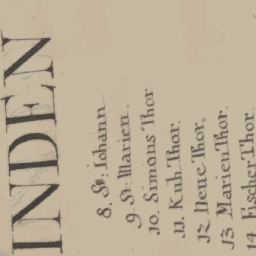 INDEN
8. St. Iohann
9. St. Marien.
10. Simons Thor
11. Kuh Thor.
12 Neue Thor.
13 Marien Thor.
14 Fischer Thor.